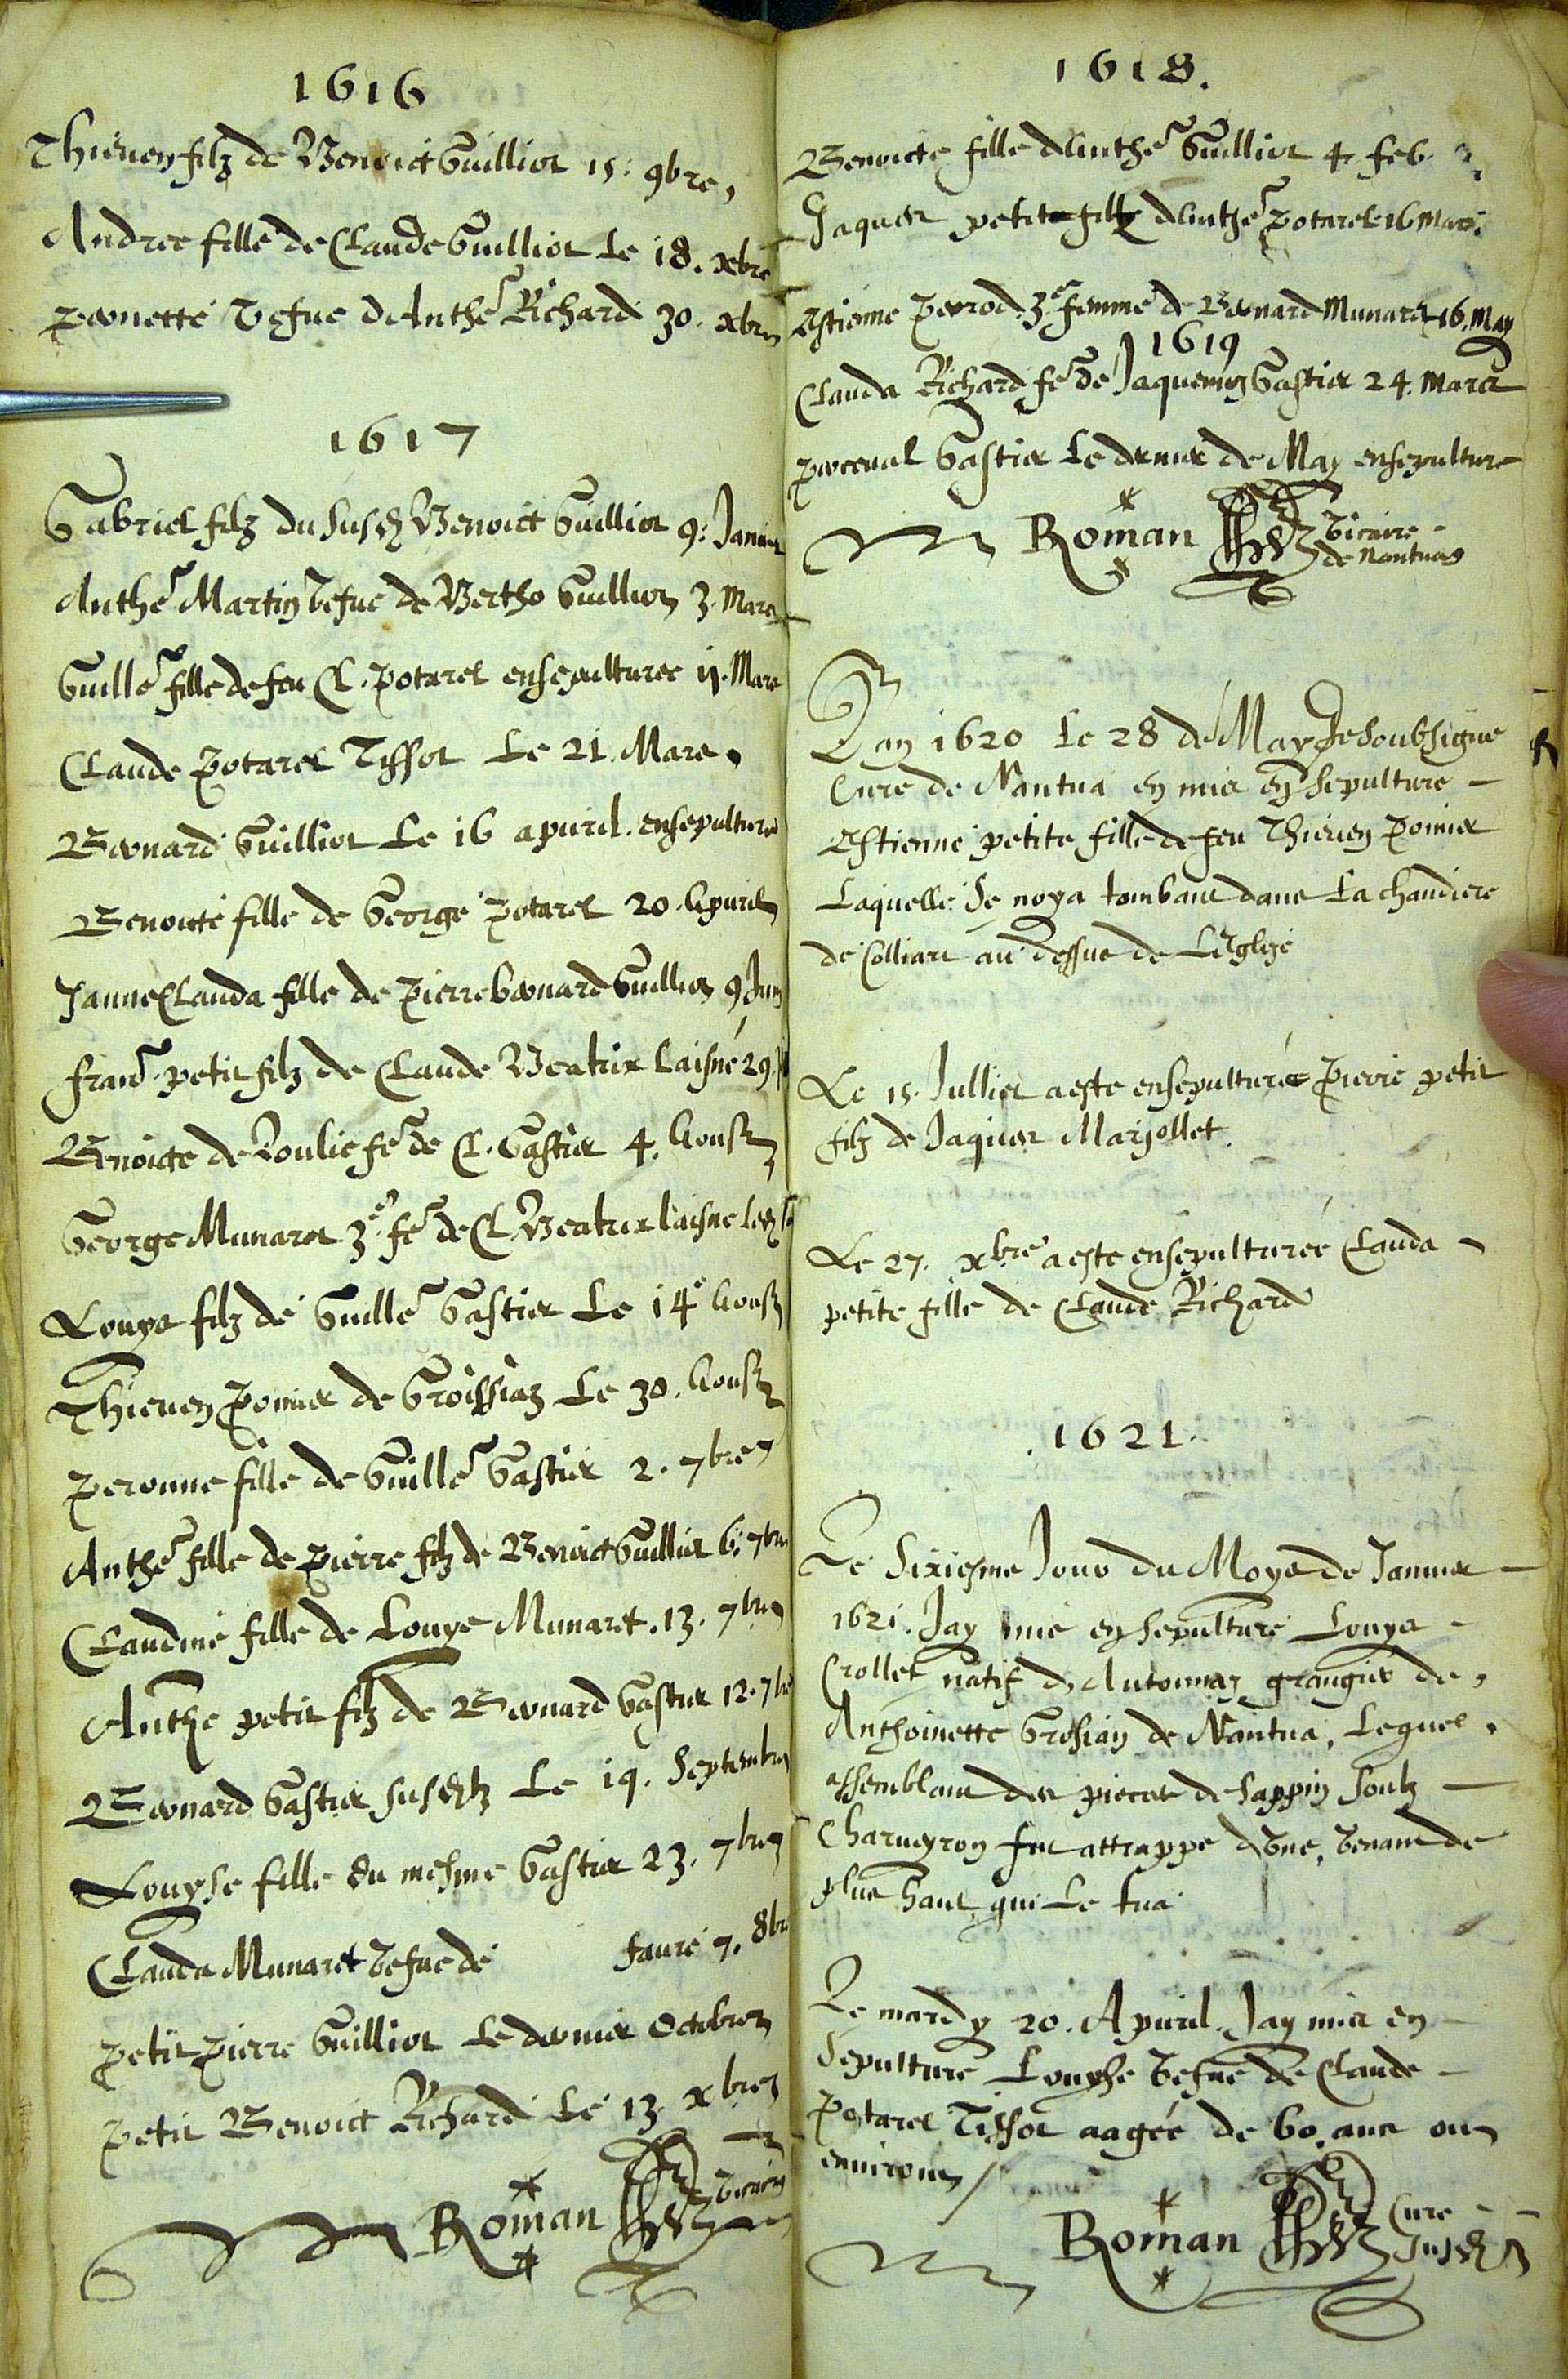 1616
Thieuen filz de Benoict Guilliot 15. 9bre,
Andree fille de Claude Guilliot Le 18. xbre
pernette Vefue de Anthe Richard 30. xbre
1617
Gabriel filz du susd Benoict Guilliot 9. Janvier
Anthe Martin Vefue de Bertho Guilliot 3. Mars
Guille fille de feu Cl. potarel ensepulturee 11. Mars
Claude potarel Tissot Le 21. Mars,
Bernard Guilliot Le 16 apuril. ensepulture
Benoicte fille de George potarel 20. Apuril
Janne Clauda fille de Pierre bernard Guilliot 9 Juin
Franc petit filz de Claude Beatrix laisné 29.
Benoicte de Roulie fe de Cl. Gastier 4. Aoust
George Munaret 3e fe de Cl. Beatrix laisne
Louys filz de Guille Gastier Le 14e Aoust
Thieuen pomier de Groissiaz Le 30. Aoust
peronne fille de Guille Gastier 2. 7bre
Anthe fille de pierre filz de Benoict Guilliot 6. 7bre
Claudine fille de Louys Munaret. 13. 7bre
Anthe petit filz de Bernard Gastier 12. 7bre
Bernard Gastier susdit Le 19. Septembre
Louyse fille du mesme Gastier 23. 7bre
Clauda Munaret Vefue de faure 7. 8bre
petit pierre Guilliot Le dernier Octobre
petit Benoict Richard Le 13. xbre
Roman Vicaire
1618.
Benoicte fille dAnthe Guilliot 4. feb.
Jaques petit filz dAnthe potarel 16 Mars
Estienne perrod 3e femme de Bernard Munaret 16. May
1619
Clauda Richard fe de Jaquemin Gastier 24. Mars
perceual Gastier Le dernier de May ensepulture
Roman Vicaire
de Nantuas
Lan 1620 Le 28 de May Je soubsigne
Cure de Nantua ay mis en sepulture
Estienne petite fille de feu Thieuen pomier
Laquelle se noya tombant dans La chaudiere
de Colliart au dessus de Leglize
Le 15. Jullier a este ensepulturé Pierre petit
filz de Jaques Marjollet.
Le 27. xbre a este ensepulturée Clauda
petite fille de Claude Richard
1621.
Le Sixiesme Jour du Moys de Januier
1621. Jay mis en sepulture Louys
Crollet natif d Antonnaz grangier de,
Anthoinette Grosian de Nantua, Lequel,
assemblant des pieces de sappin soubz
Charueyron fut attrappe dVne, Venant de
plus haut qui Le tua
Le mardy 20. Apuril. Jay mis en
sepulture Louyse Vefue de Claude
Potarel Tissot aagée de 60. ans ou
enuiron
Roman Cure
susd